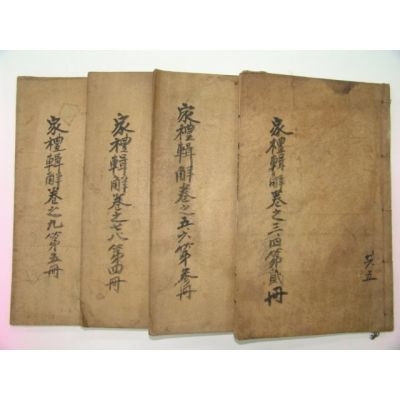 家禮輯解卷之三四第貳冊
共五
家禮輯解卷之五六第叁冊
家禮輯解卷之七八第四冊
家禮輯解卷之九第五冊